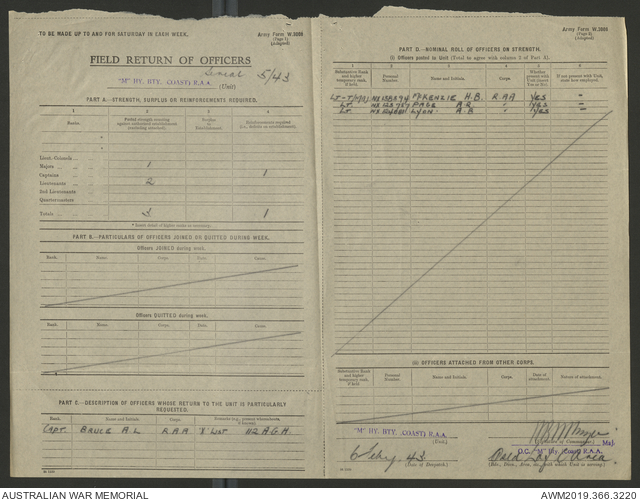 TO BE MADE UP TO AND FOR SATURDAY IN EACH WEEK.
Army Form W.3008
(Page 1)
(Adapted)
FIELD RETURN OF OFFICERS
Serial 5/43
"M" HY. BTY. (COAST) R.A.A. (Unit)
PART A.—STRENGTH, SURPLUS OR REINFORCEMENTS REQUIRED.
1 2 3 4
Ranks.
Lieut.-Colonels
Majors 1
Captains 1
Lieutenants 2
2nd Lieutenants
Quartermasters
Totals 3 1
PART B.—PARTICULARS OF OFFICERS JOINED OR QUITTED DURING WEEK.
Officers JOINED during week.
Rank. Name. Corps. Date. Cause.
Officers QUITTED during week.
Rank. Name. Corps. Date. Cause.
PART C.—DESCRIPTION OF OFFICERS WHOSE RETURN TO THE UNIT IS PARTICULARLY
REQUESTED.
Rank. Name and Initials. Corps.
Capt. BRUCE A.L R.A.A "X" List 112 A.G.H.
Army Form W.3008
(Adapted)
PART D.—NOMINAL ROLL OF OFFICERS ON STRENGTH.
(i) Officers posted to Unit (Total to agree with column 2 of Part A).
1 2 3 4 5 6
Substantive Rank
and higher
temporary rank,
if held.
Personal
Number.
Name and Initials.
Corps.
Whether
present with
Unit
(insert Yes
or No)
If not present with Unit,
state how employed.
McKENZIE H.B. RAA YES -
LT. PAGE A.R " YES -
LT. LYON A.B " YES -
(ii) OFFICERS ATTACHED FROM OTHER CORPS.
Substantive Rank
and higher
temporary rank,
if held.
Personal
Number.
Name and Initials.
Corps.
Date of
attachment.
Nature of
attachment.
"M" HY. BTY. (COAST) R.A.A.
(Unit).
Maj.
(Signature of Commander.)
O.C. "M" Hy (Coast) R.A.A.
6 Feby. 43
(Date of Despatch.)
AUSTRALIAN WAR MEMORIAL
AWM2019.366.3220